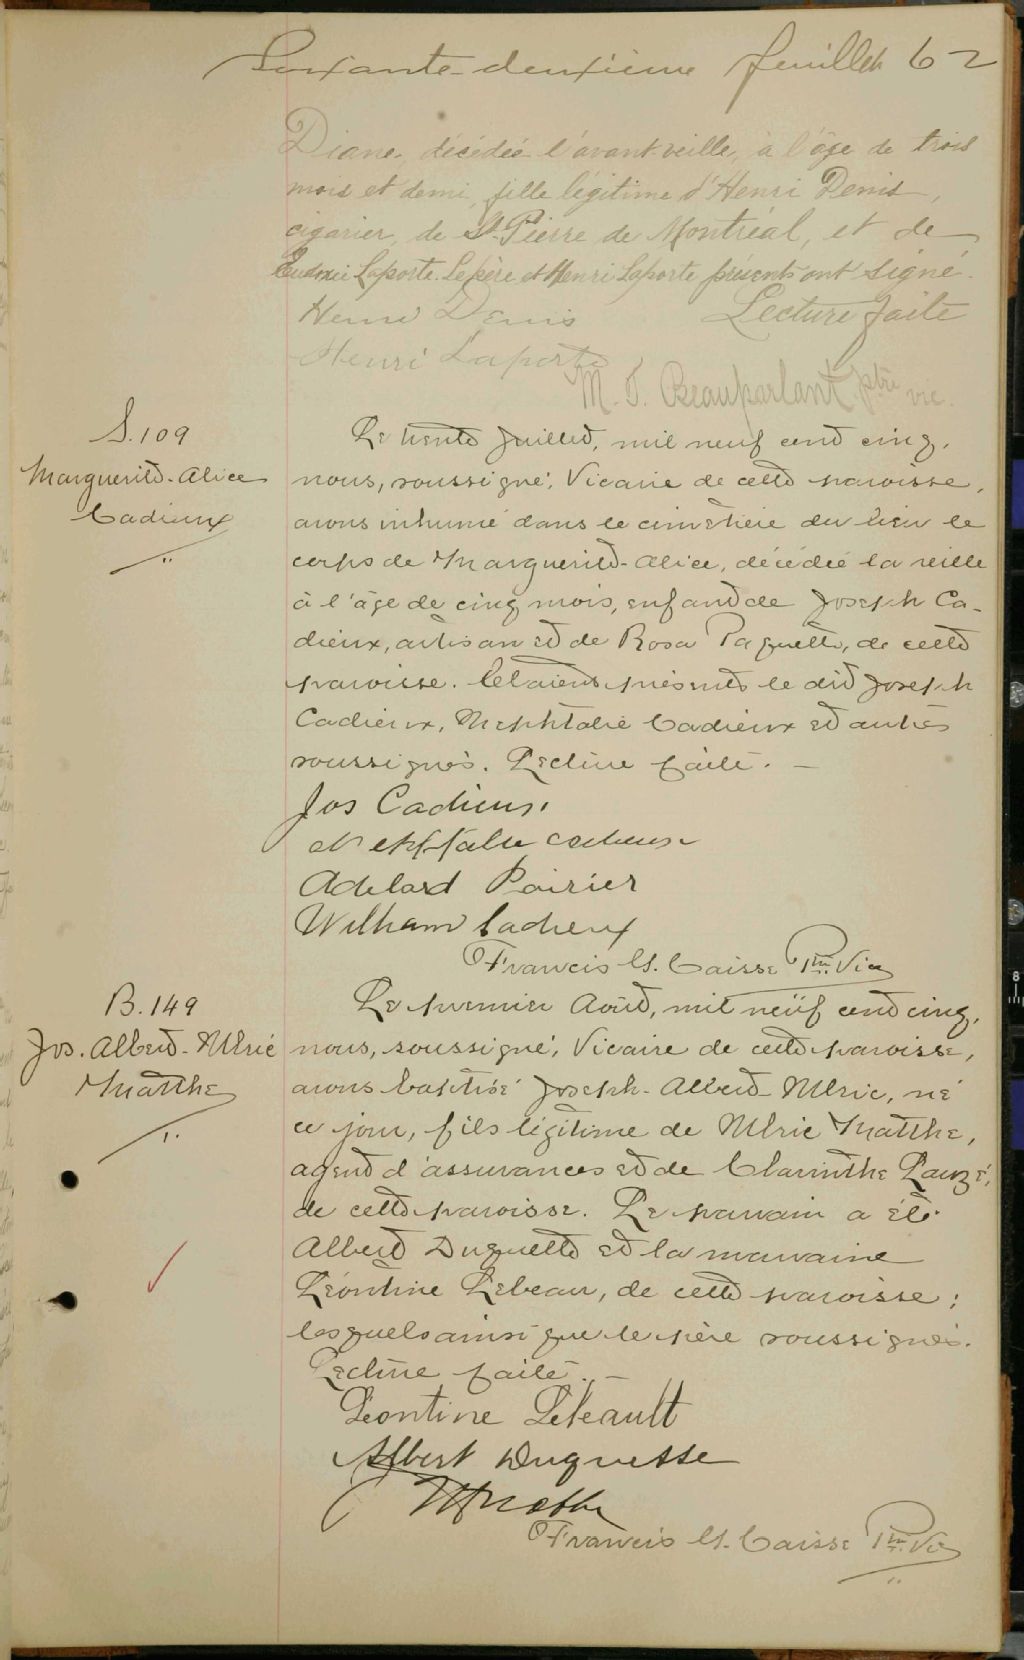 Soixante-deuxième feuillet 62
Diane, décédée l'avant-veille, à l'âge de trois
mois et demi, fille légitime d'Henri Denis,
cigarier, de St-Pierre de Montréal, et de
Eudoxie Laporte. Le père et Henri Laporte présents ont signé.
Henri Denis Lecture faite
Henri Laporte
M. J. Beauparlant ptre vic.
S. 109
Marguerite-Alice
Cadieux
Le trente Juillet, mil neuf cent cinq,
nous, soussigné, Vicaire de cette paroisse,
avons inhumé dans le cimetière du lieu le
corps de Marguerite-Alice, décédée la veille
à l'âge de cinq mois, enfant de Joseph Ca-
dieux, artisan et de Rosa Paquette, de cette
paroisse. Etaient présents le dit Joseph
Cadieux, Nephtalie Cadieux et autres
soussignés. Lecture faite. —
Jos Cadieux
Nephtalie cadieux
Adelard Poirier
William Cadieux
Francis Caisse Ptre Vic
B. 149
Jos. Albert-Ulric
Matthe
Le premier Août, mil neuf cent cinq,
nous, soussigné, Vicaire de cette paroisse,
avons baptisé Joseph-Albert-Ulric, né
ce jour, fils légitime de Ulric Matthe,
agent d'assurances et de Clarinthe Lauzé,
de cette paroisse. Le parrain a été
Albert Duquette et la marraine
Léontine Lebeau, de cette paroisse;
lesquels ainsi que le père soussignés.
Lecture faite. —
Léontine Lebeault
Albert Duquette
U Matthe
Francis Caisse Ptre Vic